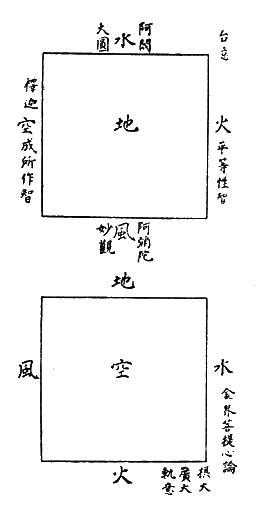 台立
阿閦
水
大圓
地
火 平等性智
釋迦 空 成所作智
阿彌陀
風
妙觀
地
空
水 金界菩提心論
風
火
摂大
廣大
軌意